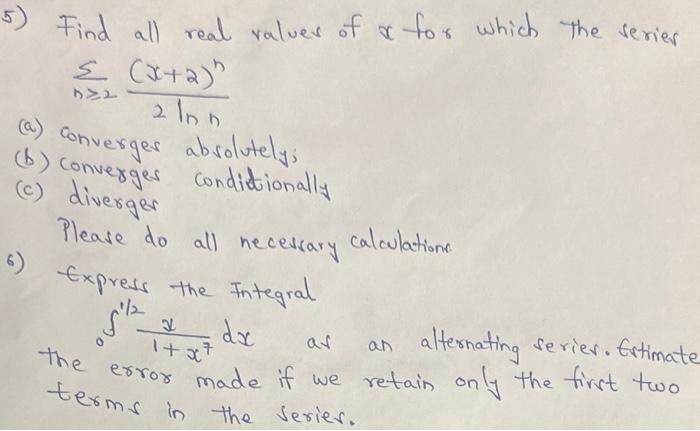 5) Find all real values of x for which the series
Σ n≥2 (x+2)^n / 2 ln n
(a) converges absolutely;
(b) converges conditionally
(c) diverges
Please do all necessary calculations
6) Express the Integral
∫₀^1/2 x / 1+x⁷ dx as an alternating series. Estimate
the error made if we retain only the first two
terms in the series.